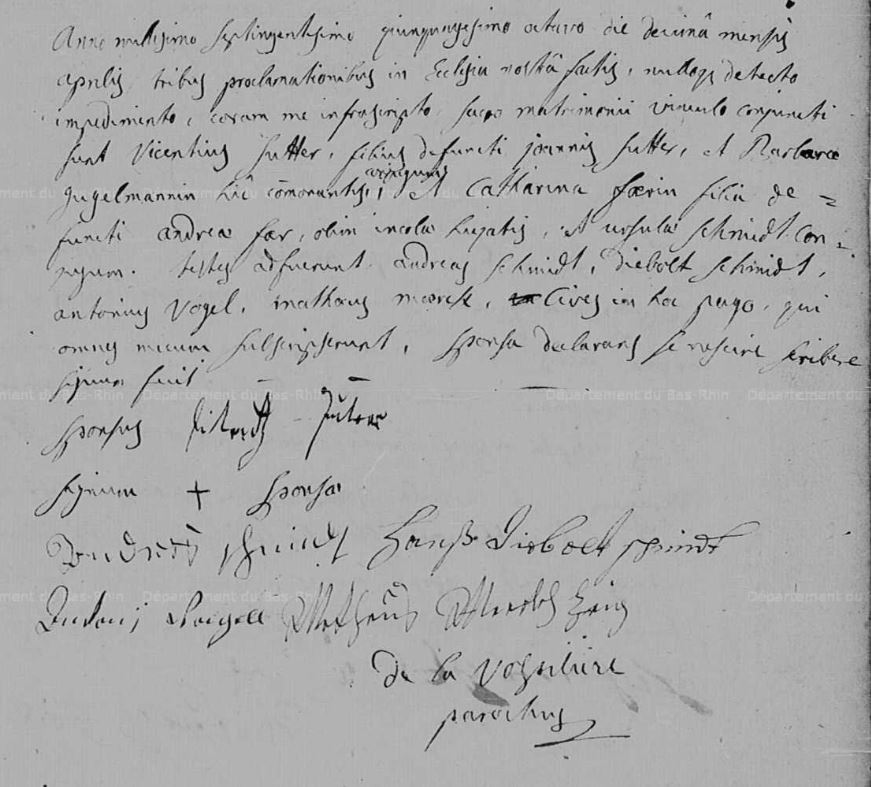 Anno millesimo septingentesimo quinquagesimo octavo die decimâ mensis
aprilis tribus proclamationibus in Ecclesia nostrâ factis, nulloq; detecto
impedimento, coram me infrascripto, sacro matrimonii vinculo conjuncti
sunt Vicentius Sutter, filius defuncti joannis Sutter, et Barbarae
conjugum
Jugelmannin hîc cōmorantis, et Catharina faerin filia de =
functi andreae faer, olim incolae hujatis, et ursulae schmidt con =
jugum. testes adfuerunt andreas schmidt, diebolt schmidt,
antonius Vogel, mathaeus maerck, cives in hoc pago, qui
omnes mecum subscripserunt, sponsa declarans se nescire scribere
signum fecit
sponsus
signum + sponsae
Andres schmidt Hanß Diebolt schmidt
Antoni Matheus zeig
de la
parochus
Département du Bas-Rhin Département du Bas-Rhin Département du Bas-Rhin